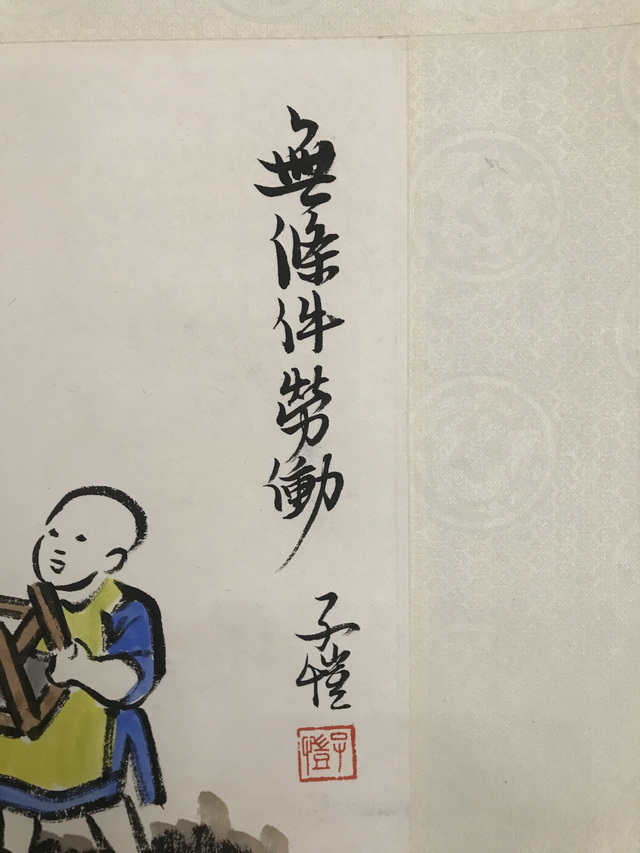 無條件勞働
子愷
子愷